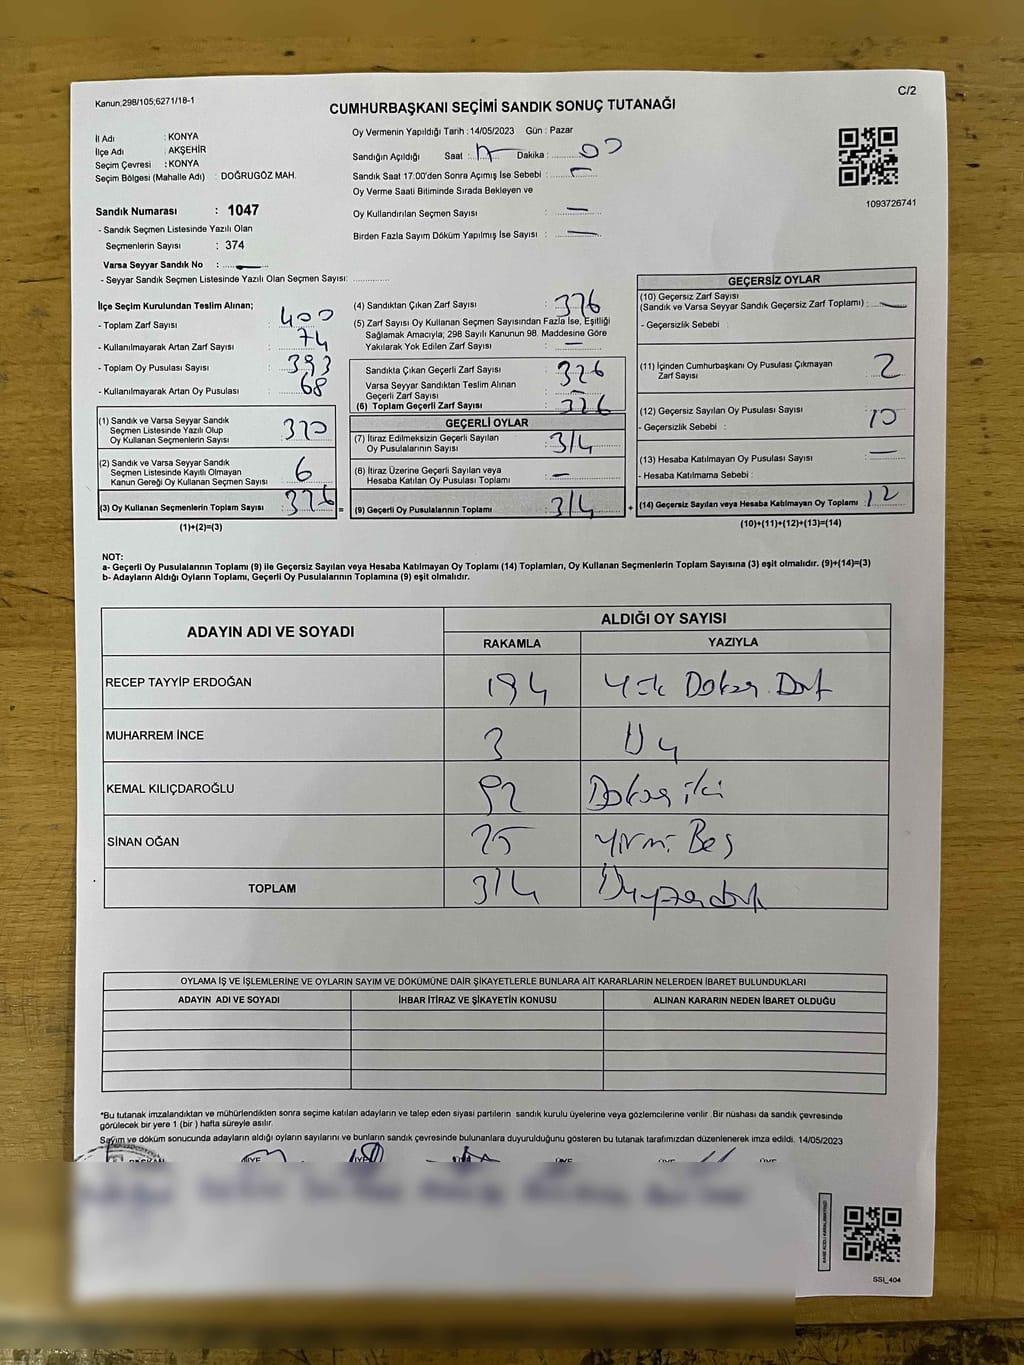 Kanun,298/105;6271/18-1
C/2
CUMHURBAŞKANI SEÇİMİ SANDIK SONUÇ TUTANAĞI
İl Adı : KONYA
İlçe Adı : AKŞEHİR
Seçim Çevresi : KONYA
Seçim Bölgesi (Mahalle Adı) : DOĞRUGÖZ MAH.
Sandık Numarası : 1047
- Sandık Seçmen Listesinde Yazılı Olan
Seçmenlerin Sayısı : 374
Varsa Seyyar Sandık No : —
- Seyyar Sandık Seçmen Listesinde Yazılı Olan Seçmen Sayısı:
Oy Vermenin Yapıldığı Tarih : 14/05/2023 Gün : Pazar
Sandığın Açıldığı Saat : 17 Dakika : 00
Sandık Saat 17.00'den Sonra Açımış İse Sebebi : —
Oy Verme Saati Bitiminde Sırada Bekleyen ve
Oy Kullandırılan Seçmen Sayısı : —
Birden Fazla Sayım Döküm Yapılmış İse Sayısı : —
1093726741
İlçe Seçim Kurulundan Teslim Alınan;
- Toplam Zarf Sayısı : 400
- Kullanılmayarak Artan Zarf Sayısı : 74
- Toplam Oy Pusulası Sayısı : 393
- Kullanılmayarak Artan Oy Pusulası : 68
(1) Sandık ve Varsa Seyyar Sandık
Seçmen Listesinde Yazılı Olup
Oy Kullanan Seçmenlerin Sayısı : 320
(2) Sandık ve Varsa Seyyar Sandık
Seçmen Listesinde Kayıtlı Olmayan
Kanun Gereği Oy Kullanan Seçmen Sayısı : 6
(3) Oy Kullanan Seçmenlerin Toplam Sayısı : 326 =
(1)+(2)=(3)
(4) Sandıktan Çıkan Zarf Sayısı : 326
(5) Zarf Sayısı Oy Kullanan Seçmen Sayısından Fazla İse, Eşitliği
Sağlamak Amacıyla; 298 Sayılı Kanunun 98. Maddesine Göre
Yakılarak Yok Edilen Zarf Sayısı : —
Sandıkta Çıkan Geçerli Zarf Sayısı : 326
Varsa Seyyar Sandıktan Teslim Alınan
Geçerli Zarf Sayısı : —
(6) Toplam Geçerli Zarf Sayısı : 326
GEÇERLİ OYLAR
(7) İtiraz Edilmeksizin Geçerli Sayılan
Oy Pusulalarının Sayısı : 314
(8) İtiraz Üzerine Geçerli Sayılan veya
Hesaba Katılan Oy Pusulası Toplamı : —
(9) Geçerli Oy Pusulalarının Toplamı : 314 +
GEÇERSİZ OYLAR
(10) Geçersiz Zarf Sayısı
(Sandık ve Varsa Seyyar Sandık Geçersiz Zarf Toplamı) : —
- Geçersizlik Sebebi :
(11) İçinden Cumhurbaşkanı Oy Pusulası Çıkmayan
Zarf Sayısı : 2
(12) Geçersiz Sayılan Oy Pusulası Sayısı : 10
- Geçersizlik Sebebi :
(13) Hesaba Katılmayan Oy Pusulası Sayısı : —
- Hesaba Katılmama Sebebi :
(14) Geçersiz Sayılan veya Hesaba Katılmayan Oy Toplamı : 12
(10)+(11)+(12)+(13)=(14)
NOT:
a- Geçerli Oy Pusulalarının Toplamı (9) ile Geçersiz Sayılan veya Hesaba Katılmayan Oy Toplamı (14) Toplamları, Oy Kullanan Seçmenlerin Toplam Sayısına (3) eşit olmalıdır. (9)+(14)=(3)
b- Adayların Aldığı Oyların Toplamı, Geçerli Oy Pusulalarının Toplamına (9) eşit olmalıdır.
ADAYIN ADI VE SOYADI
ALDIĞI OY SAYISI
RAKAMLA YAZIYLA
RECEP TAYYİP ERDOĞAN 194 Yüz Doksan Dört
MUHARREM İNCE 3 Üç
KEMAL KILIÇDAROĞLU 92 Doksan iki
SİNAN OĞAN 25 Yirmi Beş
TOPLAM 314
OYLAMA İŞ VE İŞLEMLERİNE VE OYLARIN SAYIM VE DÖKÜMÜNE DAİR ŞİKAYETLERLE BUNLARA AİT KARARLARIN NELERDEN İBARET BULUNDUKLARI
ADAYIN ADI VE SOYADI İHBAR İTİRAZ VE ŞİKAYETİN KONUSU ALINAN KARARIN NEDEN İBARET OLDUĞU
*Bu tutanak imzalandıktan ve mühürlendikten sonra seçime katılan adayların ve talep eden siyasi partilerin sandık kurulu üyelerine veya gözlemcilerine verilir. Bir nüshası da sandık çevresinde
görülecek bir yere 1 (bir) hafta süreyle asılır.
Sayım ve döküm sonucunda adayların aldığı oyların sayılarını ve bunların sandık çevresinde bulunanlara duyurulduğunu gösteren bu tutanak tarafımızdan düzenlenerek imza edildi. 14/05/2023
BAŞKAN ÜYE ÜYE ÜYE ÜYE ÜYE ÜYE
SSI_404